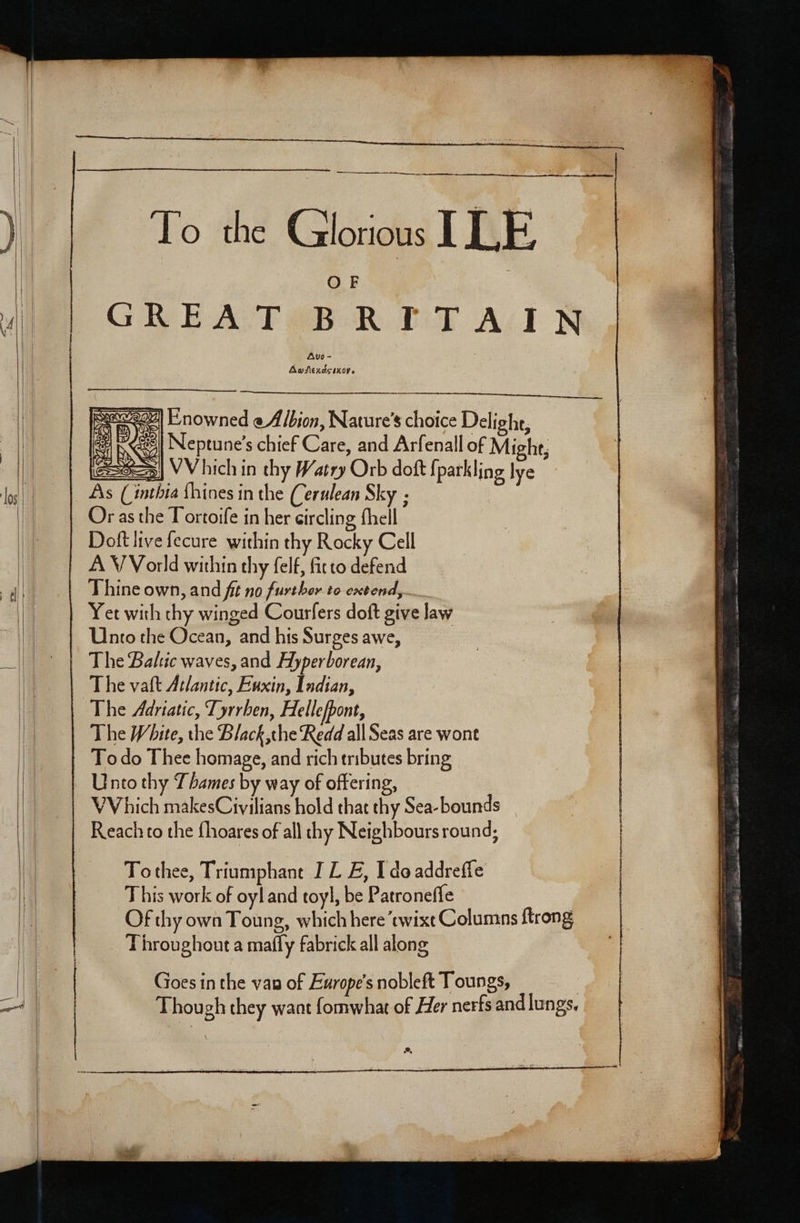 To the Glorious ILE
OF
GREAT BRITAIN
Δυο-
Δωδεκάςιχον.
REnowned Albion, Nature's choice Delight,
Neptune's chief Care, and Arſenall of Might,
VVhich in thy Watry Orb doſt ſparkling lye
As Cinthia ſhines in the Cerulean Sky ;
Or as the Tortoiſe in her circling ſhell
Doſt live ſecure within thy Rocky Cell
A VVorld within thy ſelf, fit to defend
Thine own, and fit no further to extend,
Yet with thy winged Courſers doſt give law
Unto the Ocean, and his Surges awe,
The Baltic waves, and Hyperborean,
The vaſt Atlantic, Euxin, Indian,
The Adriatic, Tyrrhen, Helleſpont,
The White, the Black, the Redd all Seas are wont
To do Thee homage, and rich tributes bring
Unto thy Thames by way of offering,
VVhich makes Civilians hold that thy Sea-bounds
Reach to the ſhoares of all thy Neighbours round;
To thee, Triumphant ILE, I do addreſſe
This work of oyl and toyl, be Patroneſſe
Of thy own Toung, which here 'twixt Columns ſtrong
Throughout a maſſy fabrick all along
Goes in the van of Europe's nobleſt Toungs,
Though they want ſomwhat of Her nerfs and lungs.